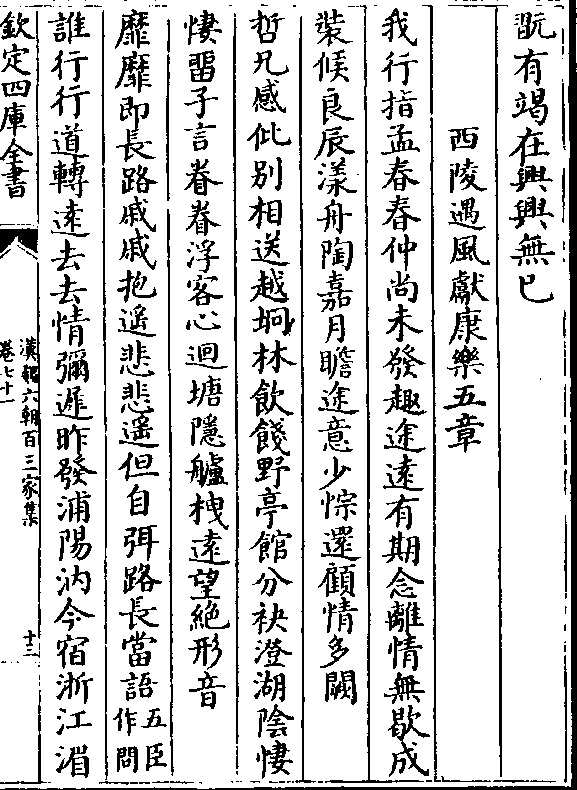 翫有竭在興興無已
西陵遇風獻康樂五章
我行指孟春春仲尚未發趣途遠有期念離情無歇成
裝候良辰漾舟陶嘉月瞻途意少悰還顧情多闕
哲兄感仳別相送越坰林飲餞野亭館分袂澄湖陰悽
悽留子言眷眷浮客心迴塘隱艫栧遠望絶形音
靡靡即長路戚戚抱遥悲悲遥但自弭路長當語五臣作問
誰行行道轉遠去去情彌遲昨發浦陽汭今宿浙江湄
欽定四庫全書
漢魏六朝百三家集
卷七十一
十三